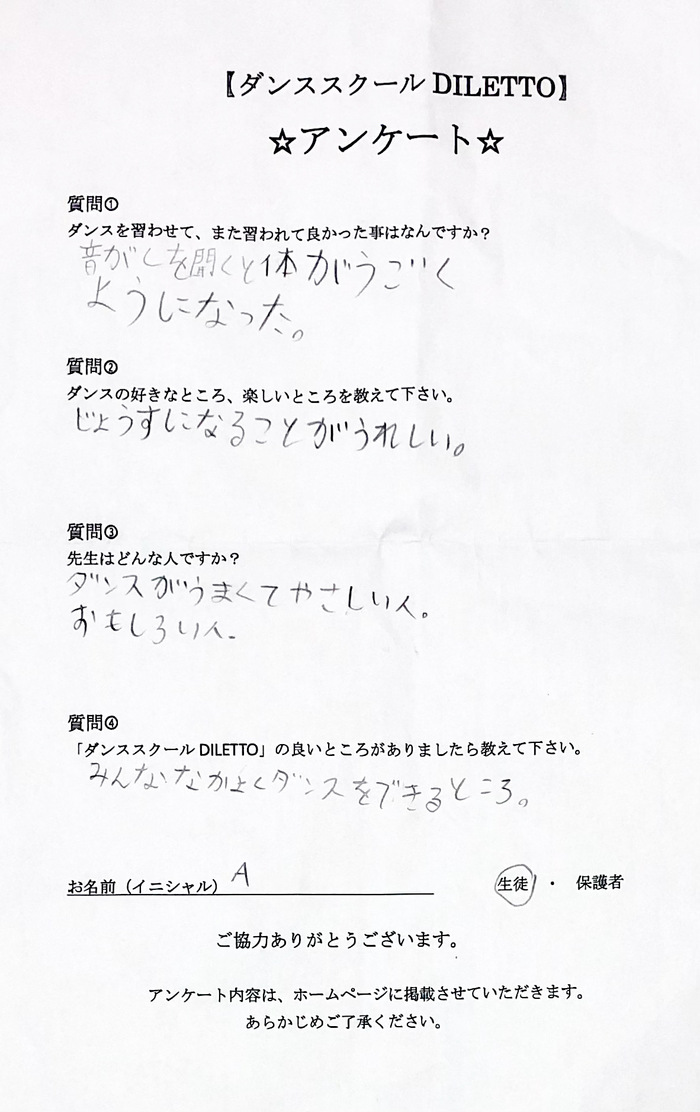 【ダンススクール DILETTO】
☆アンケート☆
質問①
ダンスを習わせて、また習われて良かった事はなんですか？
音がくを聞くと体がうごく
ようになった。
質問②
ダンスの好きなところ、楽しいところを教えて下さい。
じょうずになることがうれしい。
質問③
先生はどんな人ですか？
ダンスがうまくてやさしい人。
おもしろい人。
質問④
「ダンススクール DILETTO」の良いところがありましたら教えて下さい。
みんななかよくダンスをできるところ。
お名前（イニシャル） A
生徒 ・ 保護者
ご協力ありがとうございます。
アンケート内容は、ホームページに掲載させていただきます。
あらかじめご了承ください。